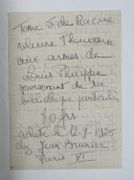 Tome 5 de Racine
reliure Thouvenin
aux armes de
Louis Philippe
provenant de sa
bibliothèque particulière
80 frs
acheté le 12-8-1925
chez Jean Brunier
Paris VI